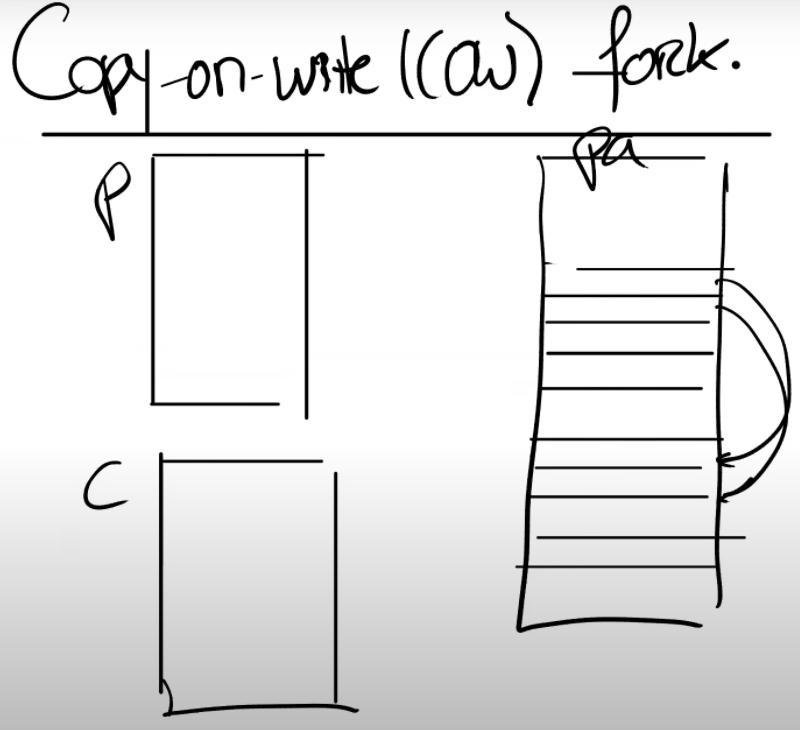 Copy-on-write (COW) fork.
pa
P
C